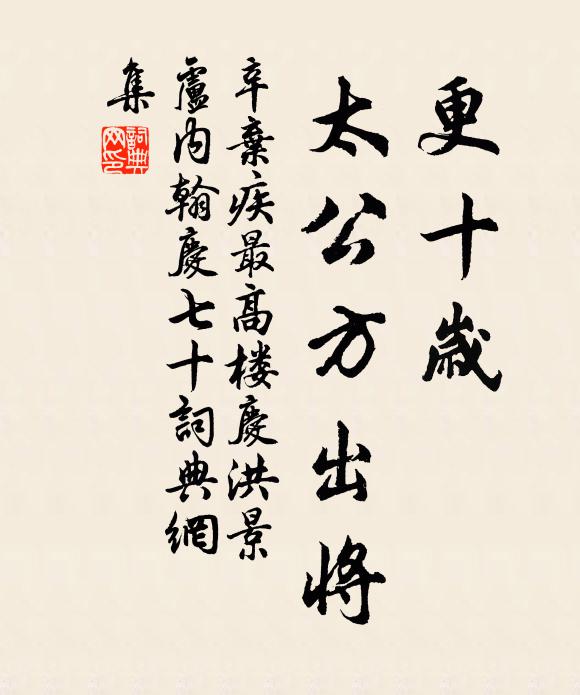 更十歲
太公方出將
辛棄疾最高楼慶洪景
盧内翰慶七十詞典網
集
詞典网印